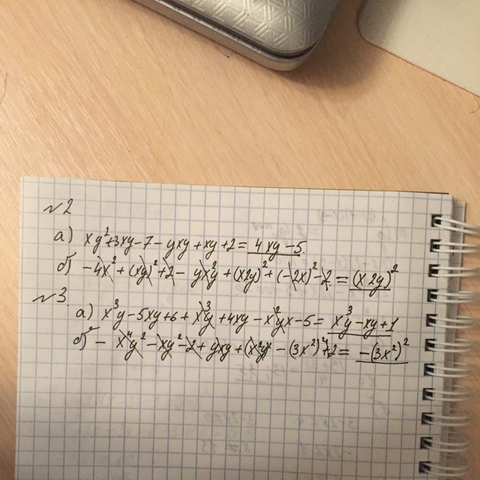 №2
а) xy²+3xy-7-yxy+xy+2=4xy-5
б) -4x²+(xy)²+2-yx²y+(x2y)²+(-2x)²-2=(x2y)²
№3.
а) x³y-5xy+6+x³y+4xy-x²yx-5=x³y-xy+1
б) -x⁴y²-xy²-2+yxy+(x²y)²-(3x²)²+2=-(3x²)²